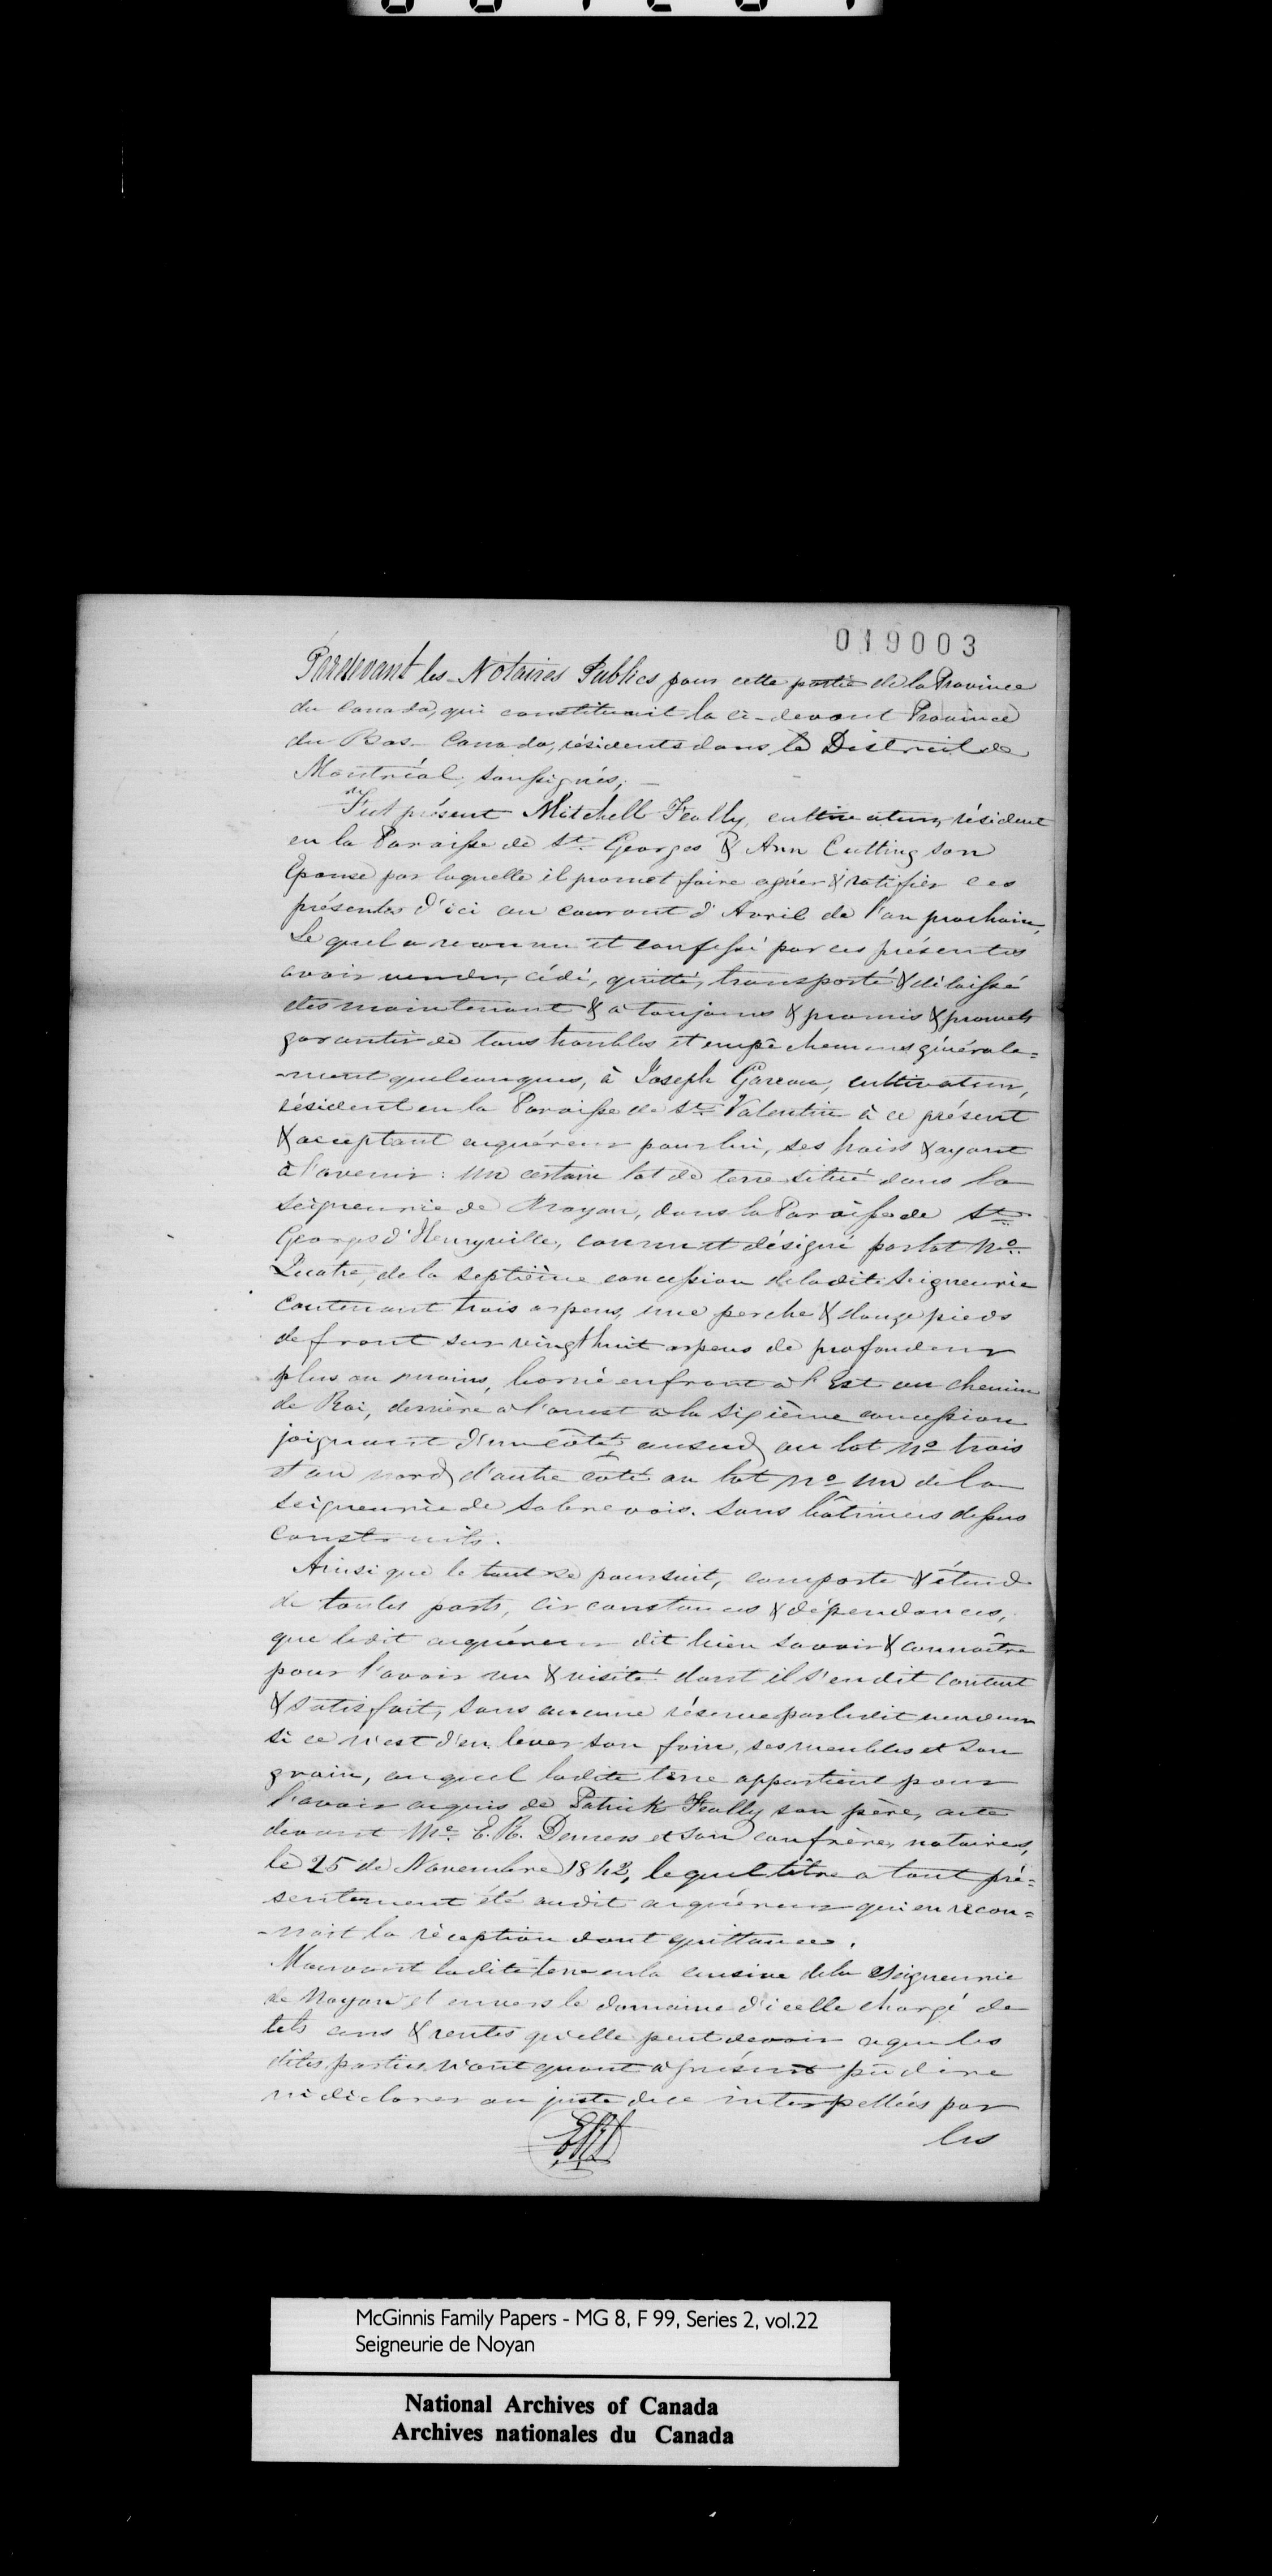 019003
Pardevant les Notaires Publics pour cette partie de la Province
du Canada, qui constituait la ci-devant Province
du Bas-Canada, résidents dans le District de
Montréal, soussignés;
Fut présent Mitchell Feally, cultivateur, résident
en la Paroisse de St. Georges & Ann Cutting son
Epouse par laquelle il promet faire agréer & ratifier ces
présentes d'ici au courant d'Avril de l'an prochain,
Lequel a reconnu et confessé par ces présentes
avoir vendu, cédé, quitté, transporté & délaissé
dès maintenant & à toujours & promis & promets
garantir de tous troubles et empêchemens générale=
-ment quelconques, à Joseph Gareau, cultivateur,
résident en la Paroisse de St. Valentin à ce présent
& acceptant acquéreur pour lui, ses hoirs & ayant
à l'avenir: un certain lot de terre situé dans la
Seigneurie de Noyan, dans la Paroisse de St.
Georges d'Henryville, connu et désigné par lot No.
Quatre, de la septième concession de ladite Seigneurie
contenant trois arpens, une perche & douze pieds
de front sur vingthuit arpens de profondeur
plus ou moins, borné en front à l'Est au chemin
de Roi, derrière à l'ouest à la sixième concession
joignant d'un côté au sud au lot No. trois
et au nord d'autre côté au lot No. un de la
Seigneurie de Sabrevois. sans bâtimens dessus
construits.
Ainsi que le tout se poursuit, comporte & étend
de toutes parts, circonstances & dépendances,
que ledit acquéreur dit bien savoir & connaître
pour l'avoir vu & visité dont il s'en dit content
& satisfait, sans aucune réserve par ledit vendeur
si ce n'est d'enlever son foin, ses meubles et son
grain, auquel ladite terre appartient pour
l'avoir acquis de Patrick Feally son père, acte
devant Me. E. R. Demers et son confrère, notaires,
le 25 de Novembre 1842, lequel titre a tout pré=
sentement été audit acquéreur qui en recon=
-nait la réception dont quittance.
Mouvant ladite terre en la censive de la Seigneurie
de Noyan et envers le domaine d'icelle chargé de
tels cens & rentes qu'elle peut devoir & que les
dites parties n'ont quant à présent pû dire
ni déclarer au juste de ce interpellées par
les
McGinnis Family Papers - MG 8, F 99, Series 2, vol.22
Seigneurie de Noyan
National Archives of Canada
Archives nationales du Canada